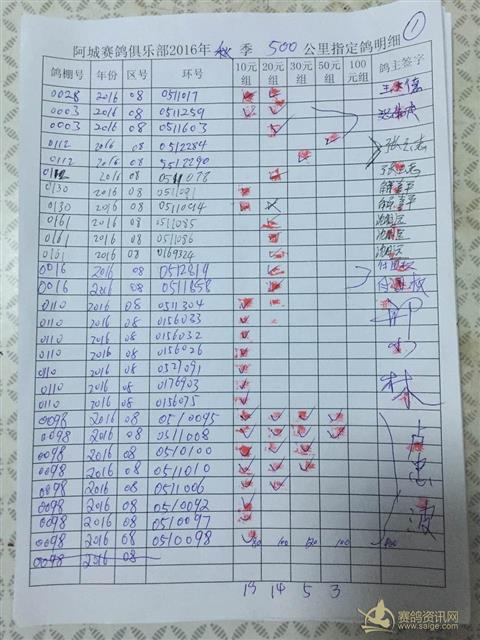 ①
阿城赛鸽俱乐部2016年 秋 季 500 公里指定鸽明细
鸽棚号 年份 区号 环号 10元组 20元组 30元组 50元组 100元组 鸽主签字
0028 2016 08 0511017
0003 2016 08 0511259
0003 2016 08 0511603
0112 2016 08 0512284 张立志
0112 2016 08 5512290
0112 2016 08 0511078 张立志
0130 2016 08 0511091
0130 2016 08 0511094
0161 2016 08 0511085
0161 2016 08 0511086
0161 2016 08 0169324
0016 2016 08 0512819
0016 2016 08 0511858
0110 2016 08 0511304
0110 2016 08 0156033
0110 2016 08 0156032
0110 2016 08 0156026
0110 2016 08 0327091
0110 2016 08 0176903 林
0110 2016 08 0156075
0098 2016 08 0510095
0098 2016 08 0511008
0098 2016 08 0510100
0098 2016 08 0511010 忠
0098 2016 08 0511006
0098 2016 08 0510092 波
0098 2016 08 0510097
0098 2016 08 0510098
0098 2016 08
19 14 5 3
赛鸽资讯网
www.saige.com